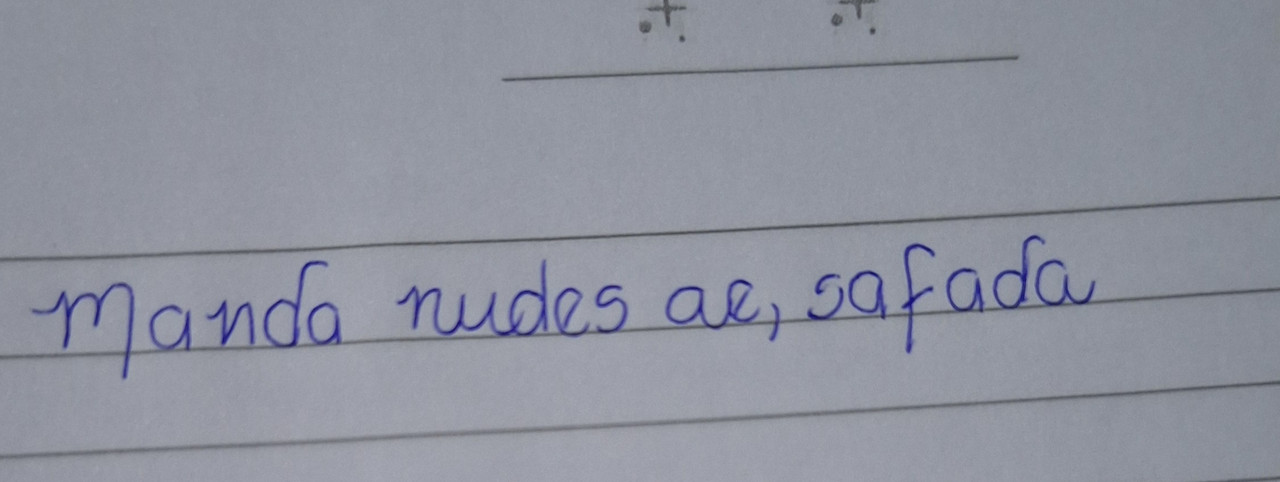 Manda nudes ae, safada